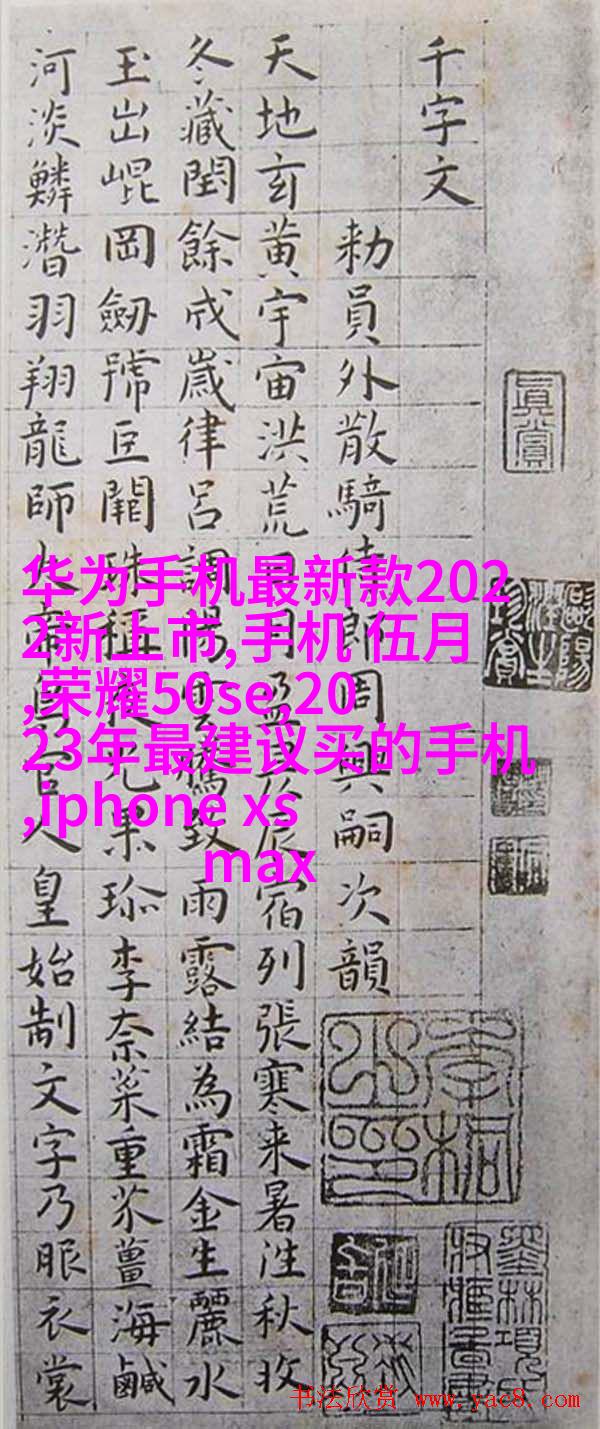 千字文
勅員外散騎侍郎周興嗣次韻
天地玄黄宇宙洪荒日月盈昃辰宿列張寒来暑往秋收
冬藏閏餘成歲律吕調陽雲騰致雨露結為霜金生麗水
玉出崐岡劒號巨闕珠稱夜光果珎李柰菜重芥薑海鹹
河淡鱗潛羽翔龍師火帝鳥官人皇始制文字乃服衣裳
眞賞
华为手机最新款202
2新上市,手机 伍月
,荣耀50se,20
23年最建议买的手机
,iphone xs
max
书法欣赏 www.yac8.com